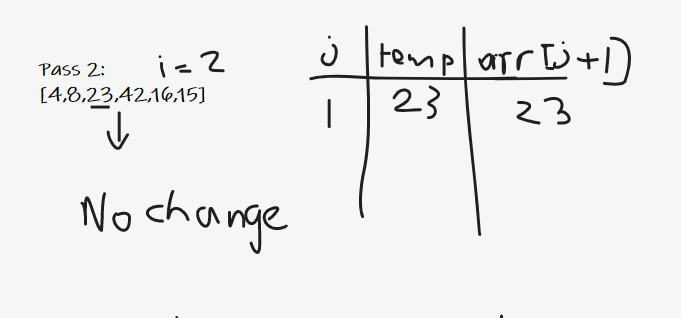 Pass 2: i = 2
[4,8,23,42,16,15]
No change
j temp arr[j+1]
1 23 23